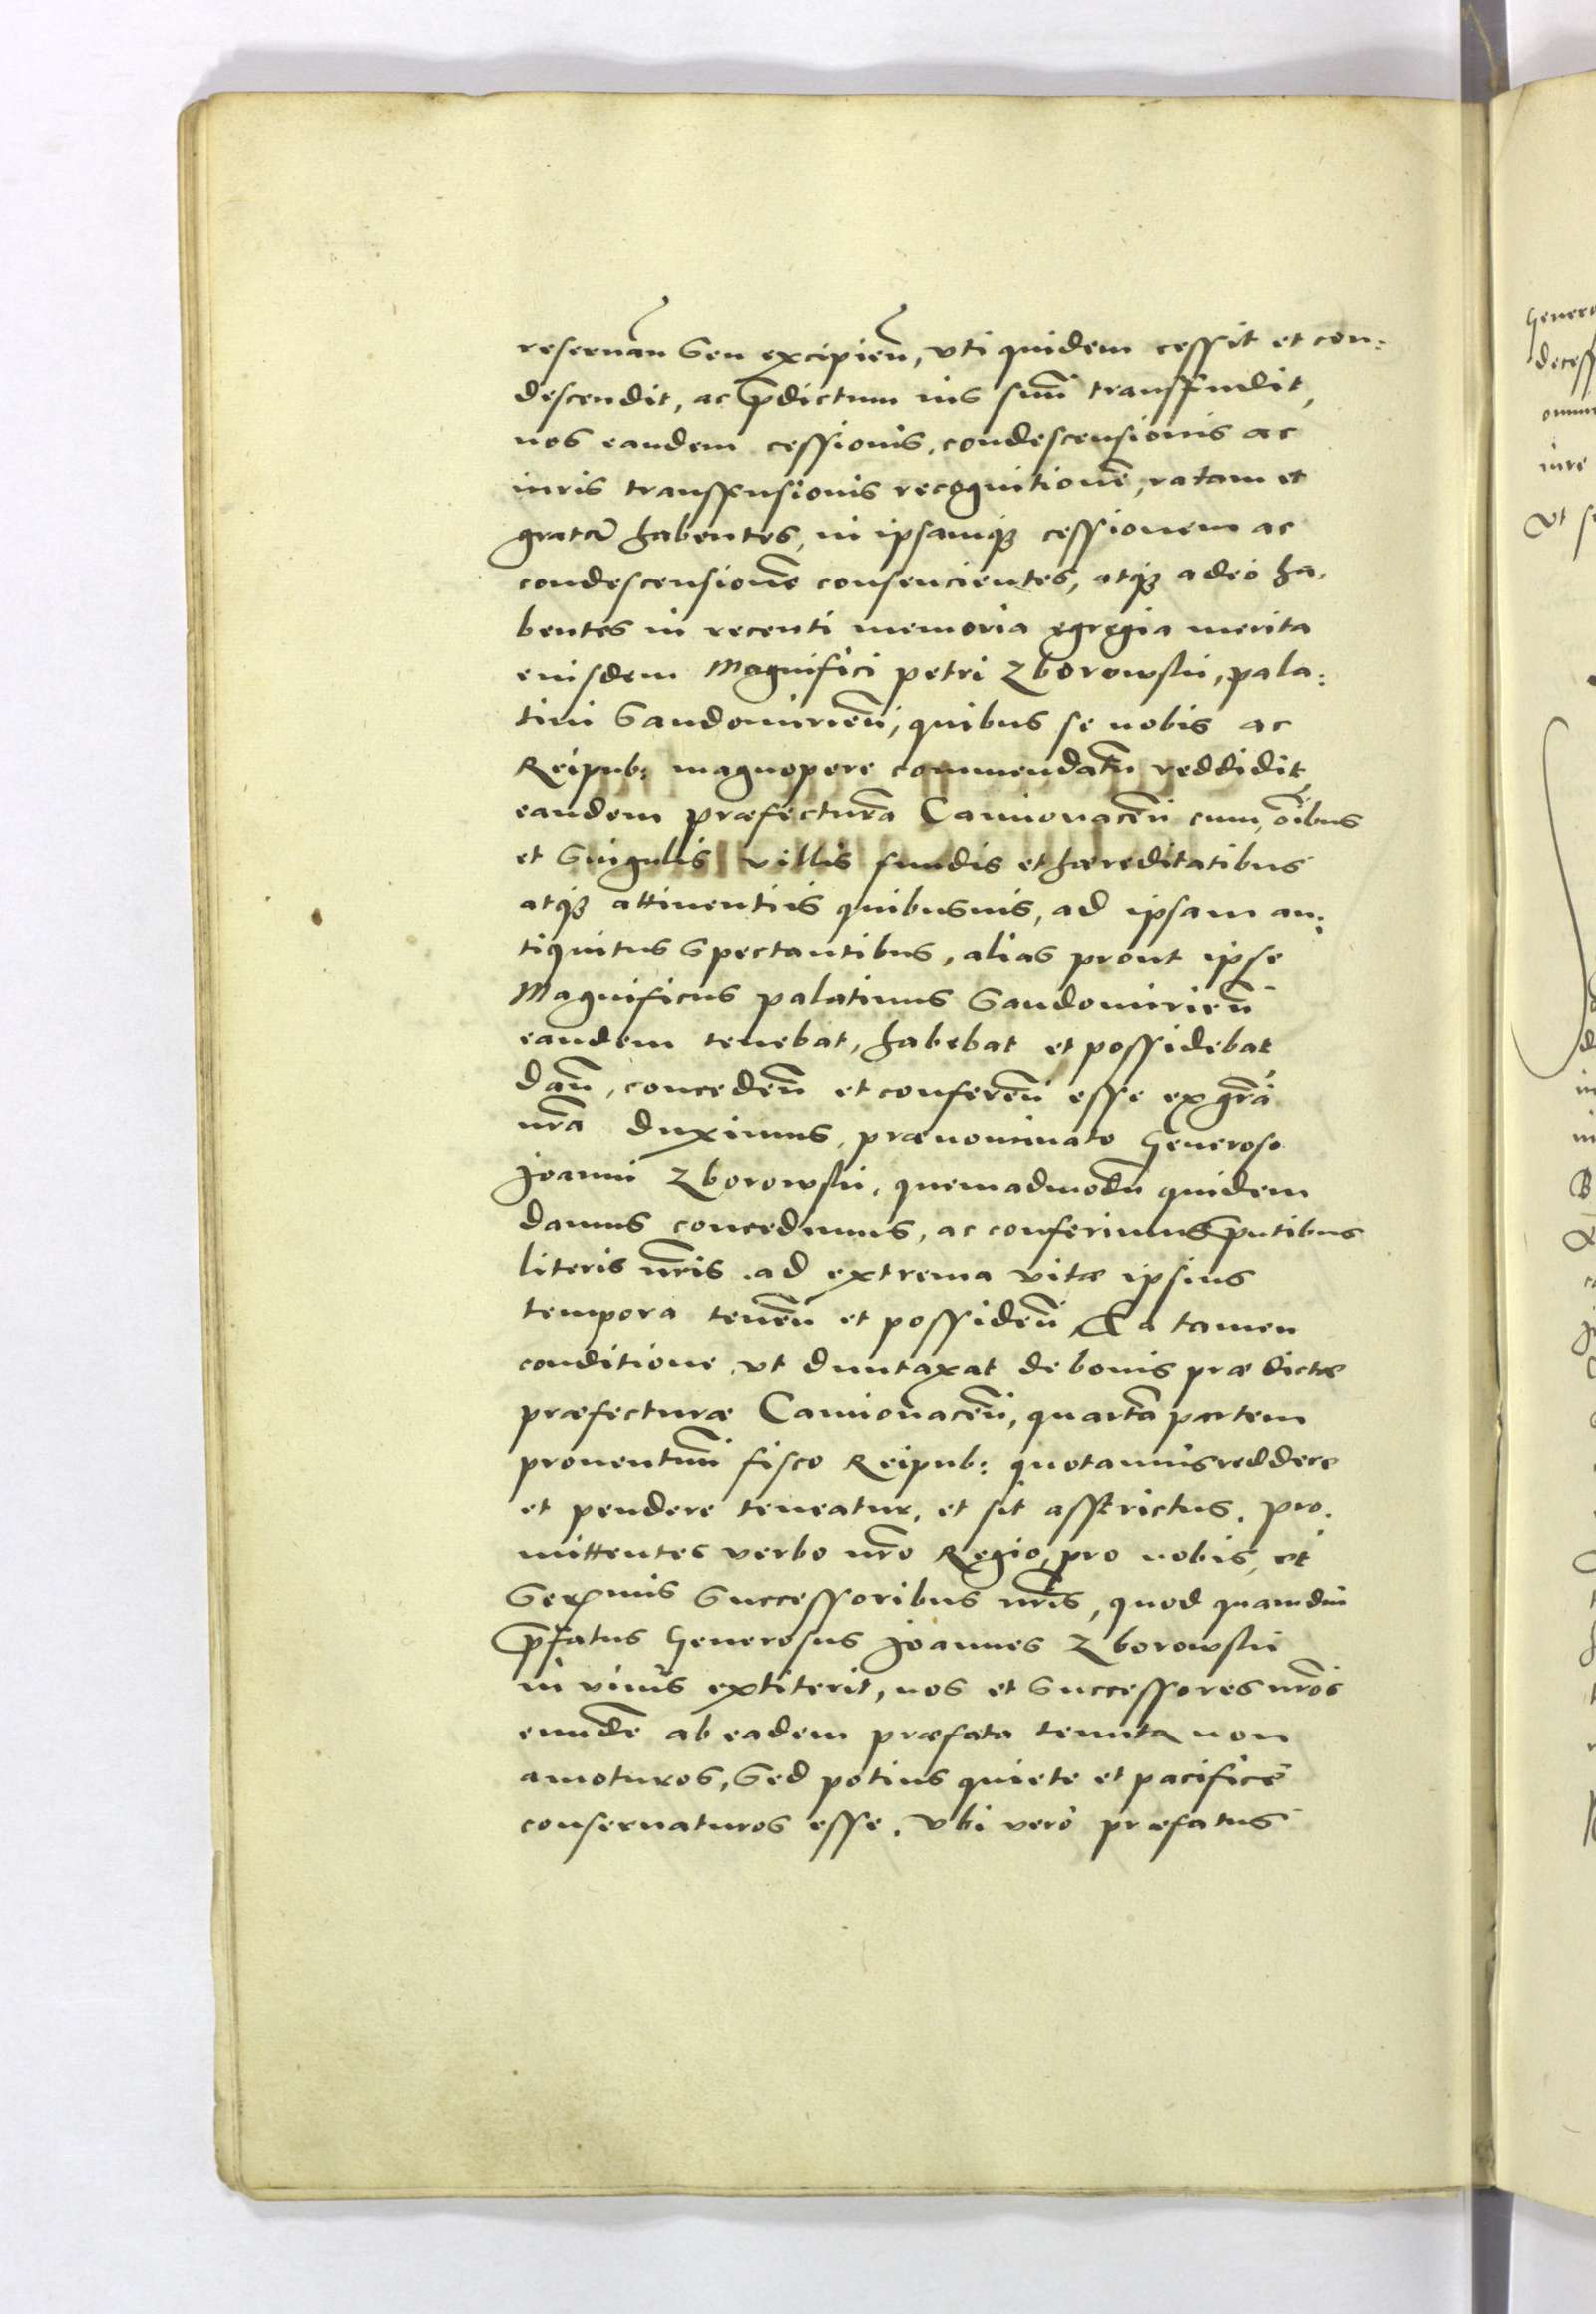 reseruan̄ seu excipien̄, vti quidem cessit et con:
descendit, ac p̄dictum ius suū transfundit,
nos eandem cessionis, condescensionis ac
iuris transfusionis recognitionē, ratam et
gratā habentes, in ipsamq; cessionem ac
condescensionē consencientes, atq; adeo ha,
bentes in recenti memoria egregia merita
eiusdem Magnifici petri Zborowski, pala:
tini Sandomirien̄, quibus se nobis ac
Reipub: magnopere commendatū reddidit,
eandem præfecturā Camionacen̄ cum, oībus
et Singulis villis fundis et hæreditatibus
atq; attinentiis quibusuis, ad ipsam an:
tiquitus Spectantibus, alias prout ipse
Magnificus palatinus Sandomirien̄
eandem tenebat, habebat et possidebat
dan̄, conceden̄ et conferen̄ esse ex gr̄a
nr̄a duximus, prænominato Generoso
Joanni Zborowski, quemadmodū quidem
damus concedimus, ac conferimus p̄ntibus
literis nr̄is ad extrema vitæ ipsius
tempora tenen̄ et possiden̄, Ea tamen
conditione, vt duntaxat de bonis præ dictæ
præfecturæ Camionacen̄, quartā partem
prouentuū fisco Reipub: quotannis reddere
et pendere teneatur, et sit asstrictus. Pro,
mittentes verbo nr̄o Regio, pro nobis, et
Serͫmis Successoribus nr̄is, quod quamdiu
p̄fatus Generosus Joannes Zborowski
in viuis extiterit, nos et Successores nr̄os
eundē ab eadem præfata tenuta non
amoturos, Sed potius quiete et pacifice
conseruaturos esse. Vbi vero præfatus